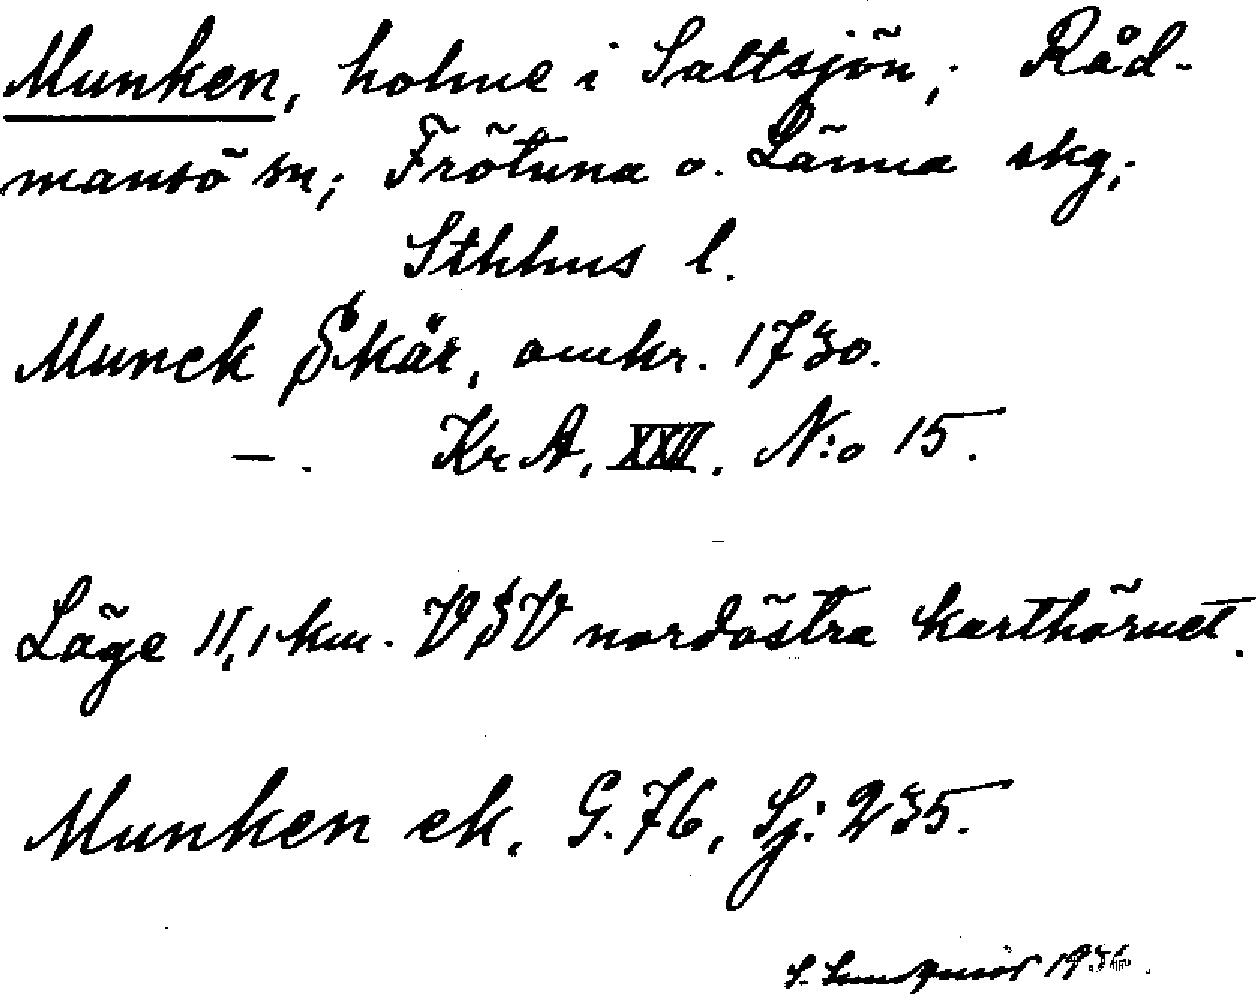 Munken, holme i Saltsjön; Råd-
mansö sn; Frötuna o. Länna skg;
Sthlms l.
Munck Skär, omkr. 1730.
—. KrA, XXII. N:o 15.
Läge 11,1 km. VSV nordöstra karthörnet.
Munken ek. G. 76, Sj: 235.
S.